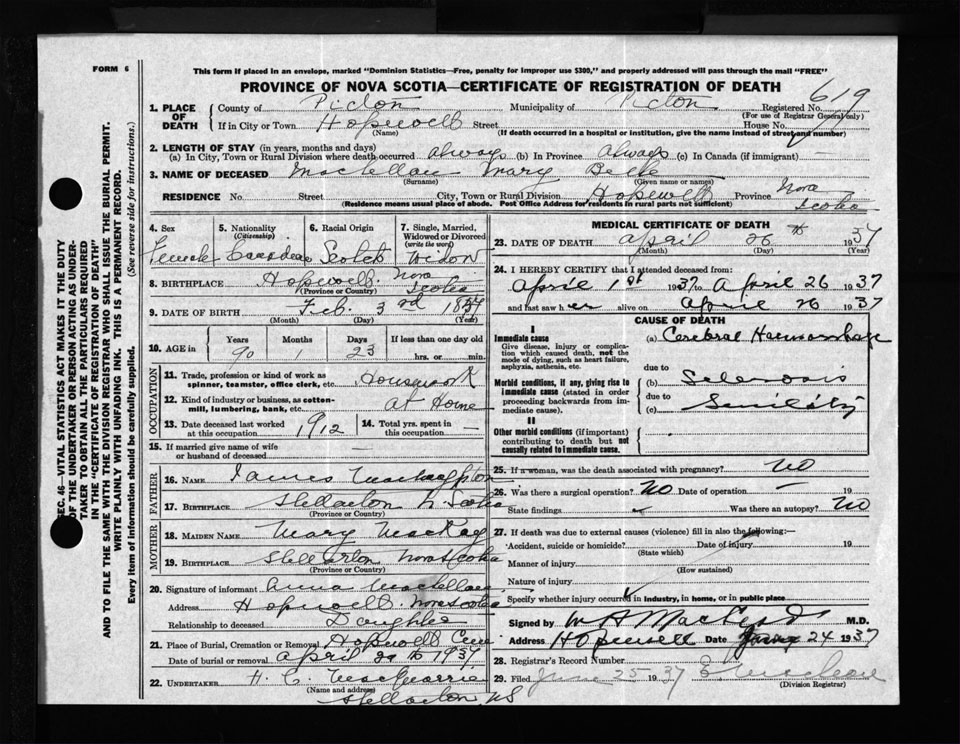 FORM 6
This form if placed in an envelope, marked "Dominion Statistics—Free, penalty for improper use $300," and properly addressed will pass through the mail "FREE"
PROVINCE OF NOVA SCOTIA—CERTIFICATE OF REGISTRATION OF DEATH
1. PLACE OF DEATH
County of Pictou Municipality of Pictou Registered No. 619
(For use of Registrar General only)
If in City or Town Hopewell Street House No.
(Name) (If death occurred in a hospital or institution, give the name instead of street and number)
2. LENGTH OF STAY (in years, months and days)
(a) In City, Town or Rural Division where death occurred always (b) In Province always (c) In Canada (if immigrant) —
3. NAME OF DECEASED MacLellan Mary Belle
(Surname) (Given name or names)
RESIDENCE No. Street City, Town or Rural Division Hopewell Province Nova Scotia
(Residence means usual place of abode. Post Office Address for residents in rural parts not sufficient)
4. Sex Female
5. Nationality (Citizenship) Canadian
6. Racial Origin Scotch
7. Single, Married, Widowed or Divorced (write the word) Widow
8. BIRTHPLACE Hopewell Nova Scotia
(Province or Country)
9. DATE OF BIRTH Feb. 3rd
(Month) (Day) (Year)
10. AGE in Years Months Days If less than one day old
90 1 23 hrs. or min.
OCCUPATION
11. Trade, profession or kind of work as spinner, teamster, office clerk, etc. Housework
12. Kind of industry or business, as cotton-mill, lumbering, bank, etc. at Home
13. Date deceased last worked at this occupation 1912
14. Total yrs. spent in this occupation —
15. If married give name of wife or husband of deceased —
FATHER
16. NAME James
17. BIRTHPLACE Stellarton N. Scotia
(Province or Country)
MOTHER
18. MAIDEN NAME Mary MacKay
19. BIRTHPLACE Stellarton Nova Scotia
(Province or Country)
20. Signature of informant Anna MacLellan
Address Hopewell Nova Scotia
Relationship to deceased Daughter
21. Place of Burial, Cremation or Removal Hopewell Cem
Date of burial or removal April 29 th 1937
22. UNDERTAKER H. C. MacQuarrie
(Name and address)
Stellarton NS
MEDICAL CERTIFICATE OF DEATH
23. DATE OF DEATH April 26 th 1937
(Month) (Day) (Year)
24. I HEREBY CERTIFY that I attended deceased from:
April 1st 1937 to April 26 1937
and last saw h er alive on April 26 1937
CAUSE OF DEATH
I
Give disease, injury or complication which caused death, not the mode of dying, such as heart failure, asphyxia, asthenia, etc.
(a) Cerebral Haemorrhage
due to
Morbid conditions, if any, giving rise to immediate cause (stated in order proceeding backwards from immediate cause).
(b) Sclerosis
due to
(c) Senility
II
Other morbid conditions (if important) contributing to death but not causally related to immediate cause.
25. If a woman, was the death associated with pregnancy? No
26. Was there a surgical operation? No Date of operation — 19
State findings Was there an autopsy? No
27. If death was due to external causes (violence) fill in also the following:—
Accident, suicide or homicide? Date of injury 19
(State which)
Manner of injury
(How sustained)
Nature of injury
Specify whether injury occurred in industry, in home, or in public place
Signed by M.D.
Address Hopewell Date 24 1937
28. Registrar's Record Number
29. Filed June 25 1937
(Division Registrar)
SEC. 46—VITAL STATISTICS ACT MAKES IT THE DUTY
OF THE UNDERTAKER OR PERSON ACTING AS UNDERTAKER TO OBTAIN ALL THE PARTICULARS REQUIRED
IN THE "CERTIFICATE OF REGISTRATION OF DEATH"
AND TO FILE THE SAME WITH THE DIVISION REGISTRAR WHO SHALL ISSUE THE BURIAL PERMIT.
WRITE PLAINLY WITH UNFADING INK. THIS IS A PERMANENT RECORD.
Every item of information should be carefully supplied. (See reverse side for instructions.)